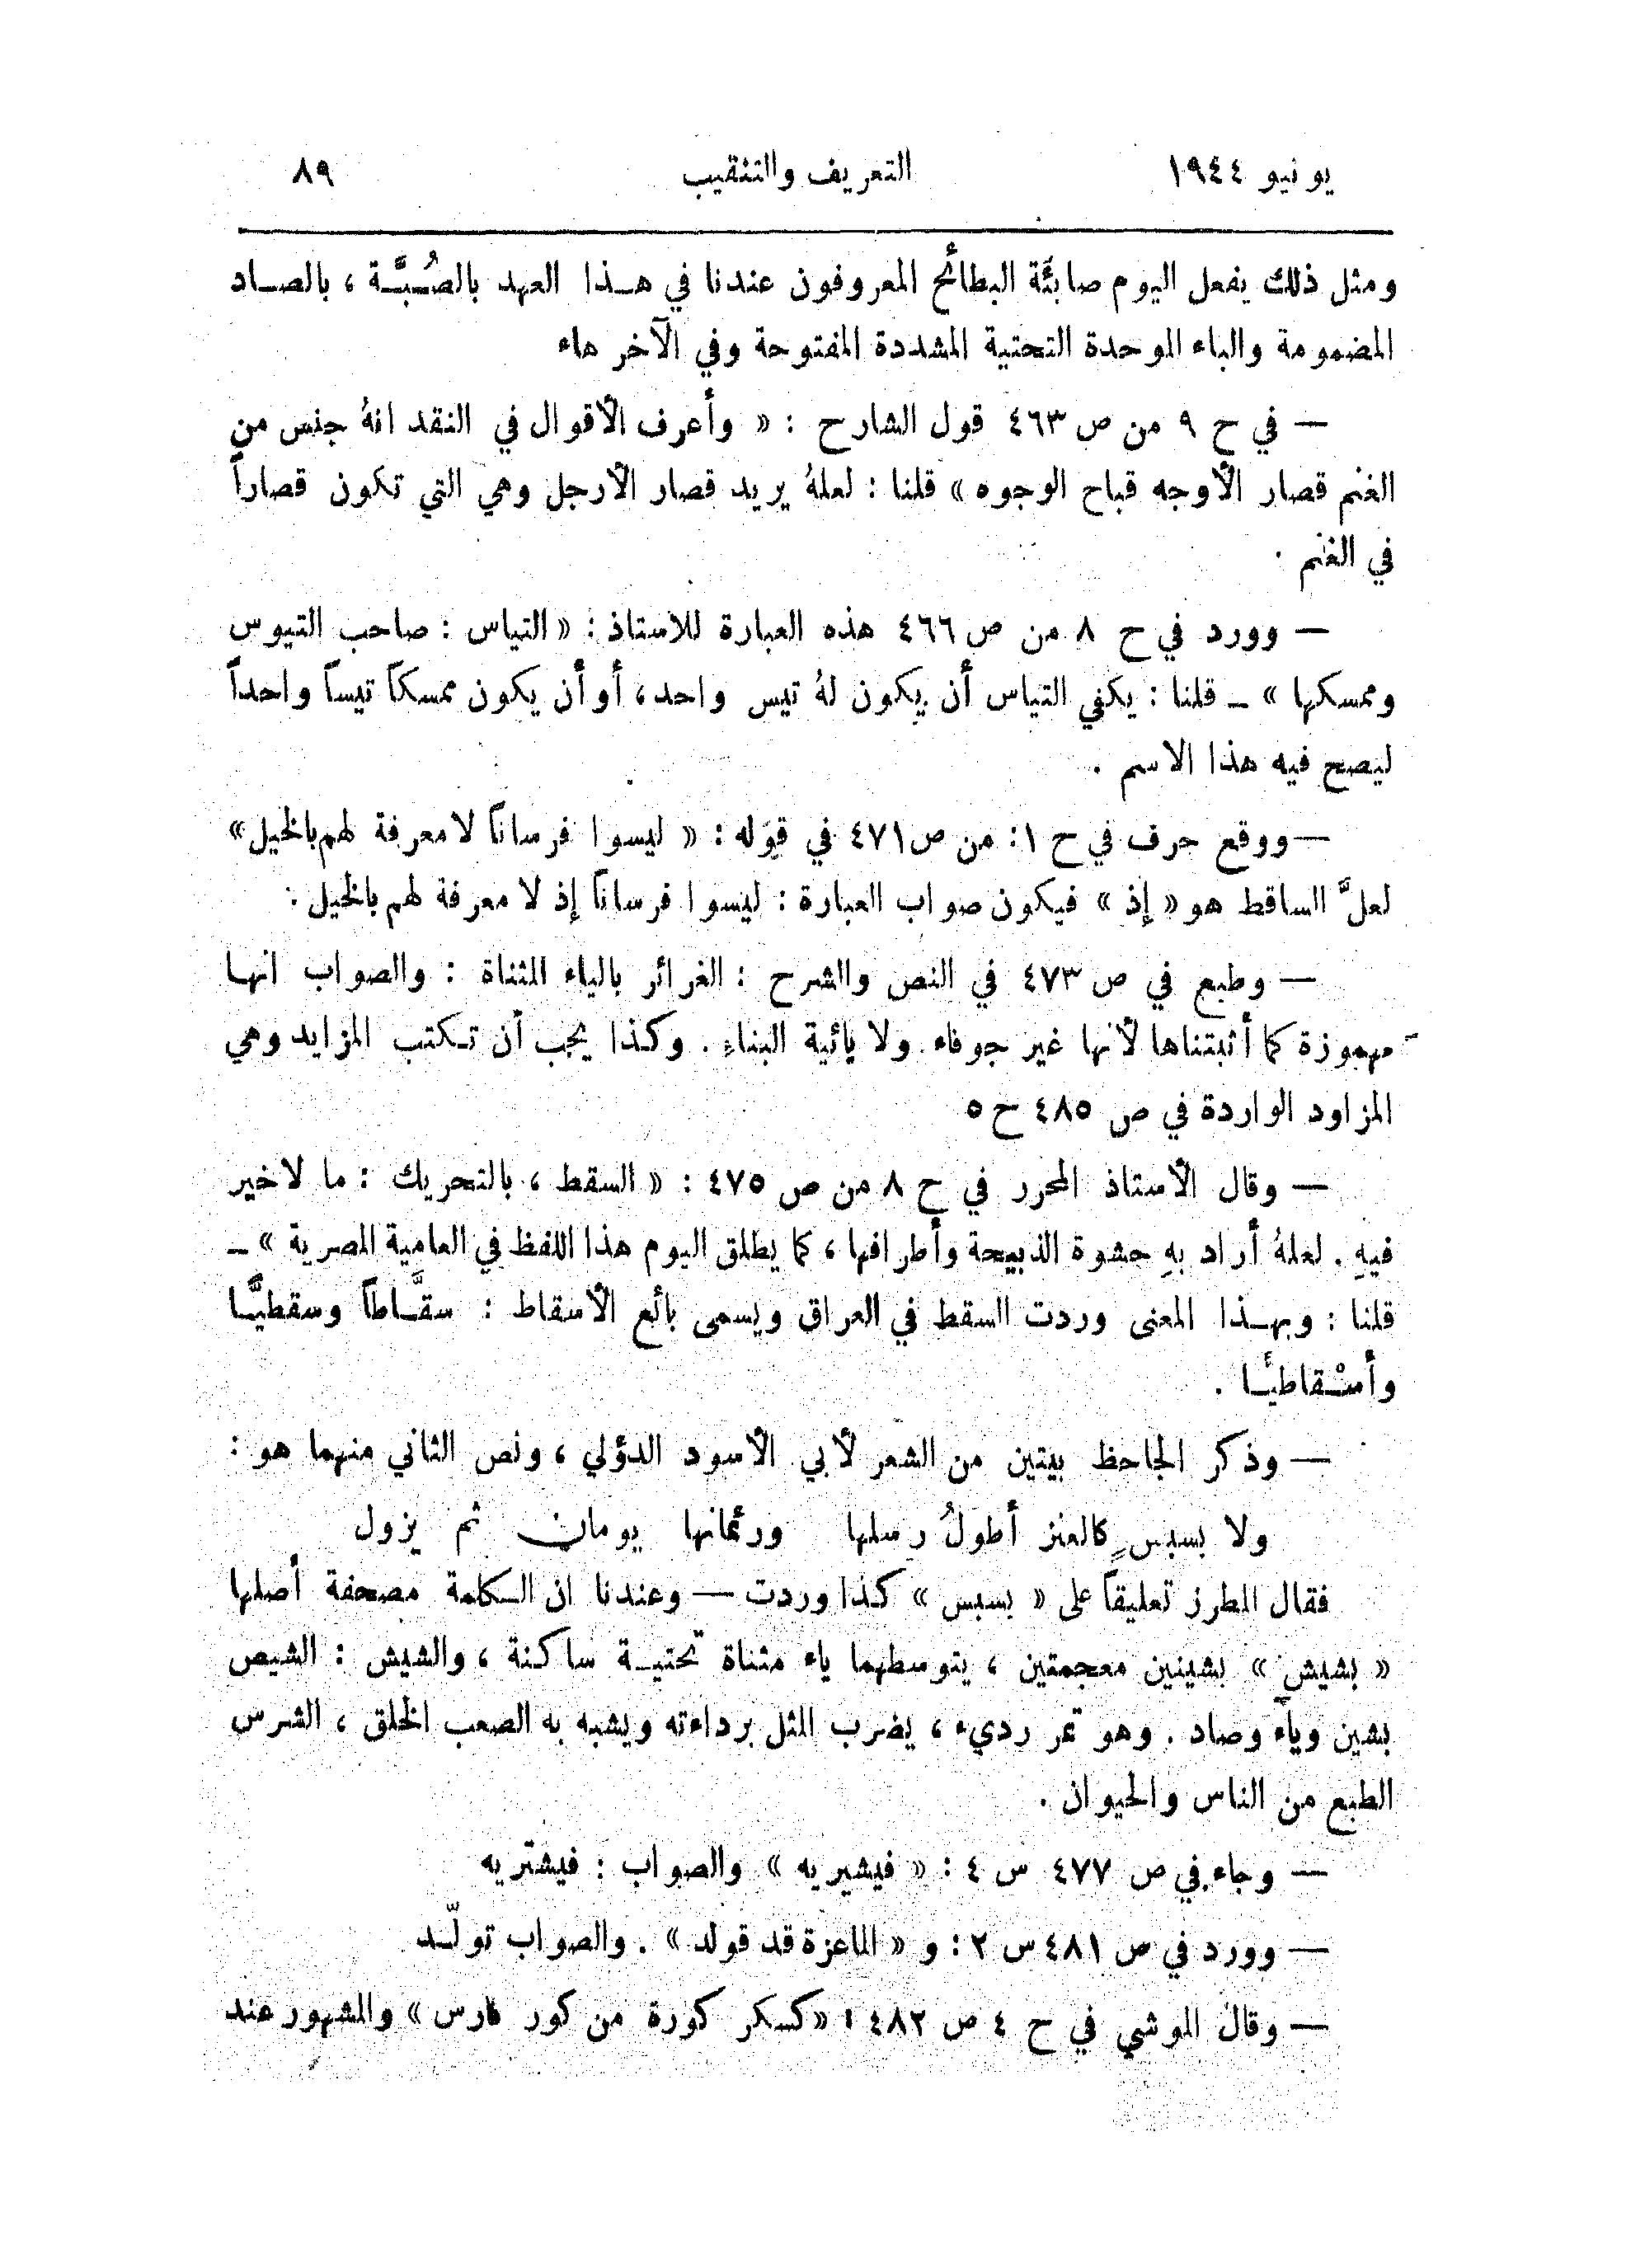 يونيو ١٩٤٤ التعريف والتنقيب ٨٩
ومثل ذلك يفعل اليوم صابئة البطائح المعروفون عندنا في هـذا العهد بالصُـبَّـة ، بالصـاد
المضمومة والباء الموحدة التحتية المشددة المفتوحة وفي الآخر هاء
— في ح ٩ من ص ٤٦٣ قول الشارح : « وأعرف الأقوال في النقد انهُ جنس من
الغنم قصار الأوجه قباح الوجوه » قلنا : لعلهُ يريد قصار الأرجل وهي التي تكون قصاراً
في الغنم .
— وورد في ح ٨ من ص ٤٦٦ هذه العبارة للاستاذ : « التياس : صاحب التيوس
وممسكها » — قلنا : يكفي التياس أن يكون لهُ تيس واحد ، أو أن يكون ممسكاً تيساً واحداً
ليصح فيه هذا الاسم .
— ووقع حرف في ح ١ : من ص ٤٧١ في قوله : « ليسوا فرساناً لا معرفة لهم بالخيل »
لعلَّ الساقط هو « إذ » فيكون صواب العبارة : ليسوا فرساناً إذ لا معرفة لهم بالخيل .
— وطبع في ص ٤٧٣ في النص والشرح : الغرائر بالياء المثناة : والصواب انها
مهموزة كما أثبتناها لأنها غير جوفاء ولا يائية البناءِ . وكذا يجب أن تـكتب المزايد وهي
المزاود الواردة في ص ٤٨٥ ح ٥
— وقال الأستاذ المحرر في ح ٨ من ص ٤٧٥ : « السقط ، بالتحريك : ما لا خير
فيهِ . لعلهُ أراد بهِ حشوة الذبيحة وأطرافها ، كما يطلق اليوم هذا اللفظ في العامية المصرية » —
قلنا : وبهـذا المعنى وردت السقط في العراق ويسمى بائع الأسقاط : سقَّـاطاً وسقطيًّـا
وأسْـقاطيًّـا .
— وذكر الجاحظ بيتين من الشعر لأبي الأسود الدؤلي ، ونص الثاني منهما هو :
ولا بسبسٍ كالعنز أطولُ رسلها ورئمانها يومان ثم يزول
فقال المطرز تعليقاً على « بسبس » كذا وردت — وعندنا ان الـكلمة مصحفة أصلها
« بشيش » بشينين معجمتين ، يتوسطهما ياء مثناة تحتيـة ساكنة ، والشيش : الشيص
بشين وياء وصاد . وهو تمر رديء ، يضرب المثل برداءته ويشبه به الصعب الخلق ، الشرس
الطبع من الناس والحيوان .
— وجاء في ص ٤٧٧ س ٤ : « فيشيريه » والصواب : فيشتريه
— وورد في ص ٤٨١ س ٢ : و « الماعزة قد قولد » . والصواب تولّـد
— وقال الموشي في ح ٤ ص ٤٨٢ : « كسكر كورة من كور فارس » والمشهور عند